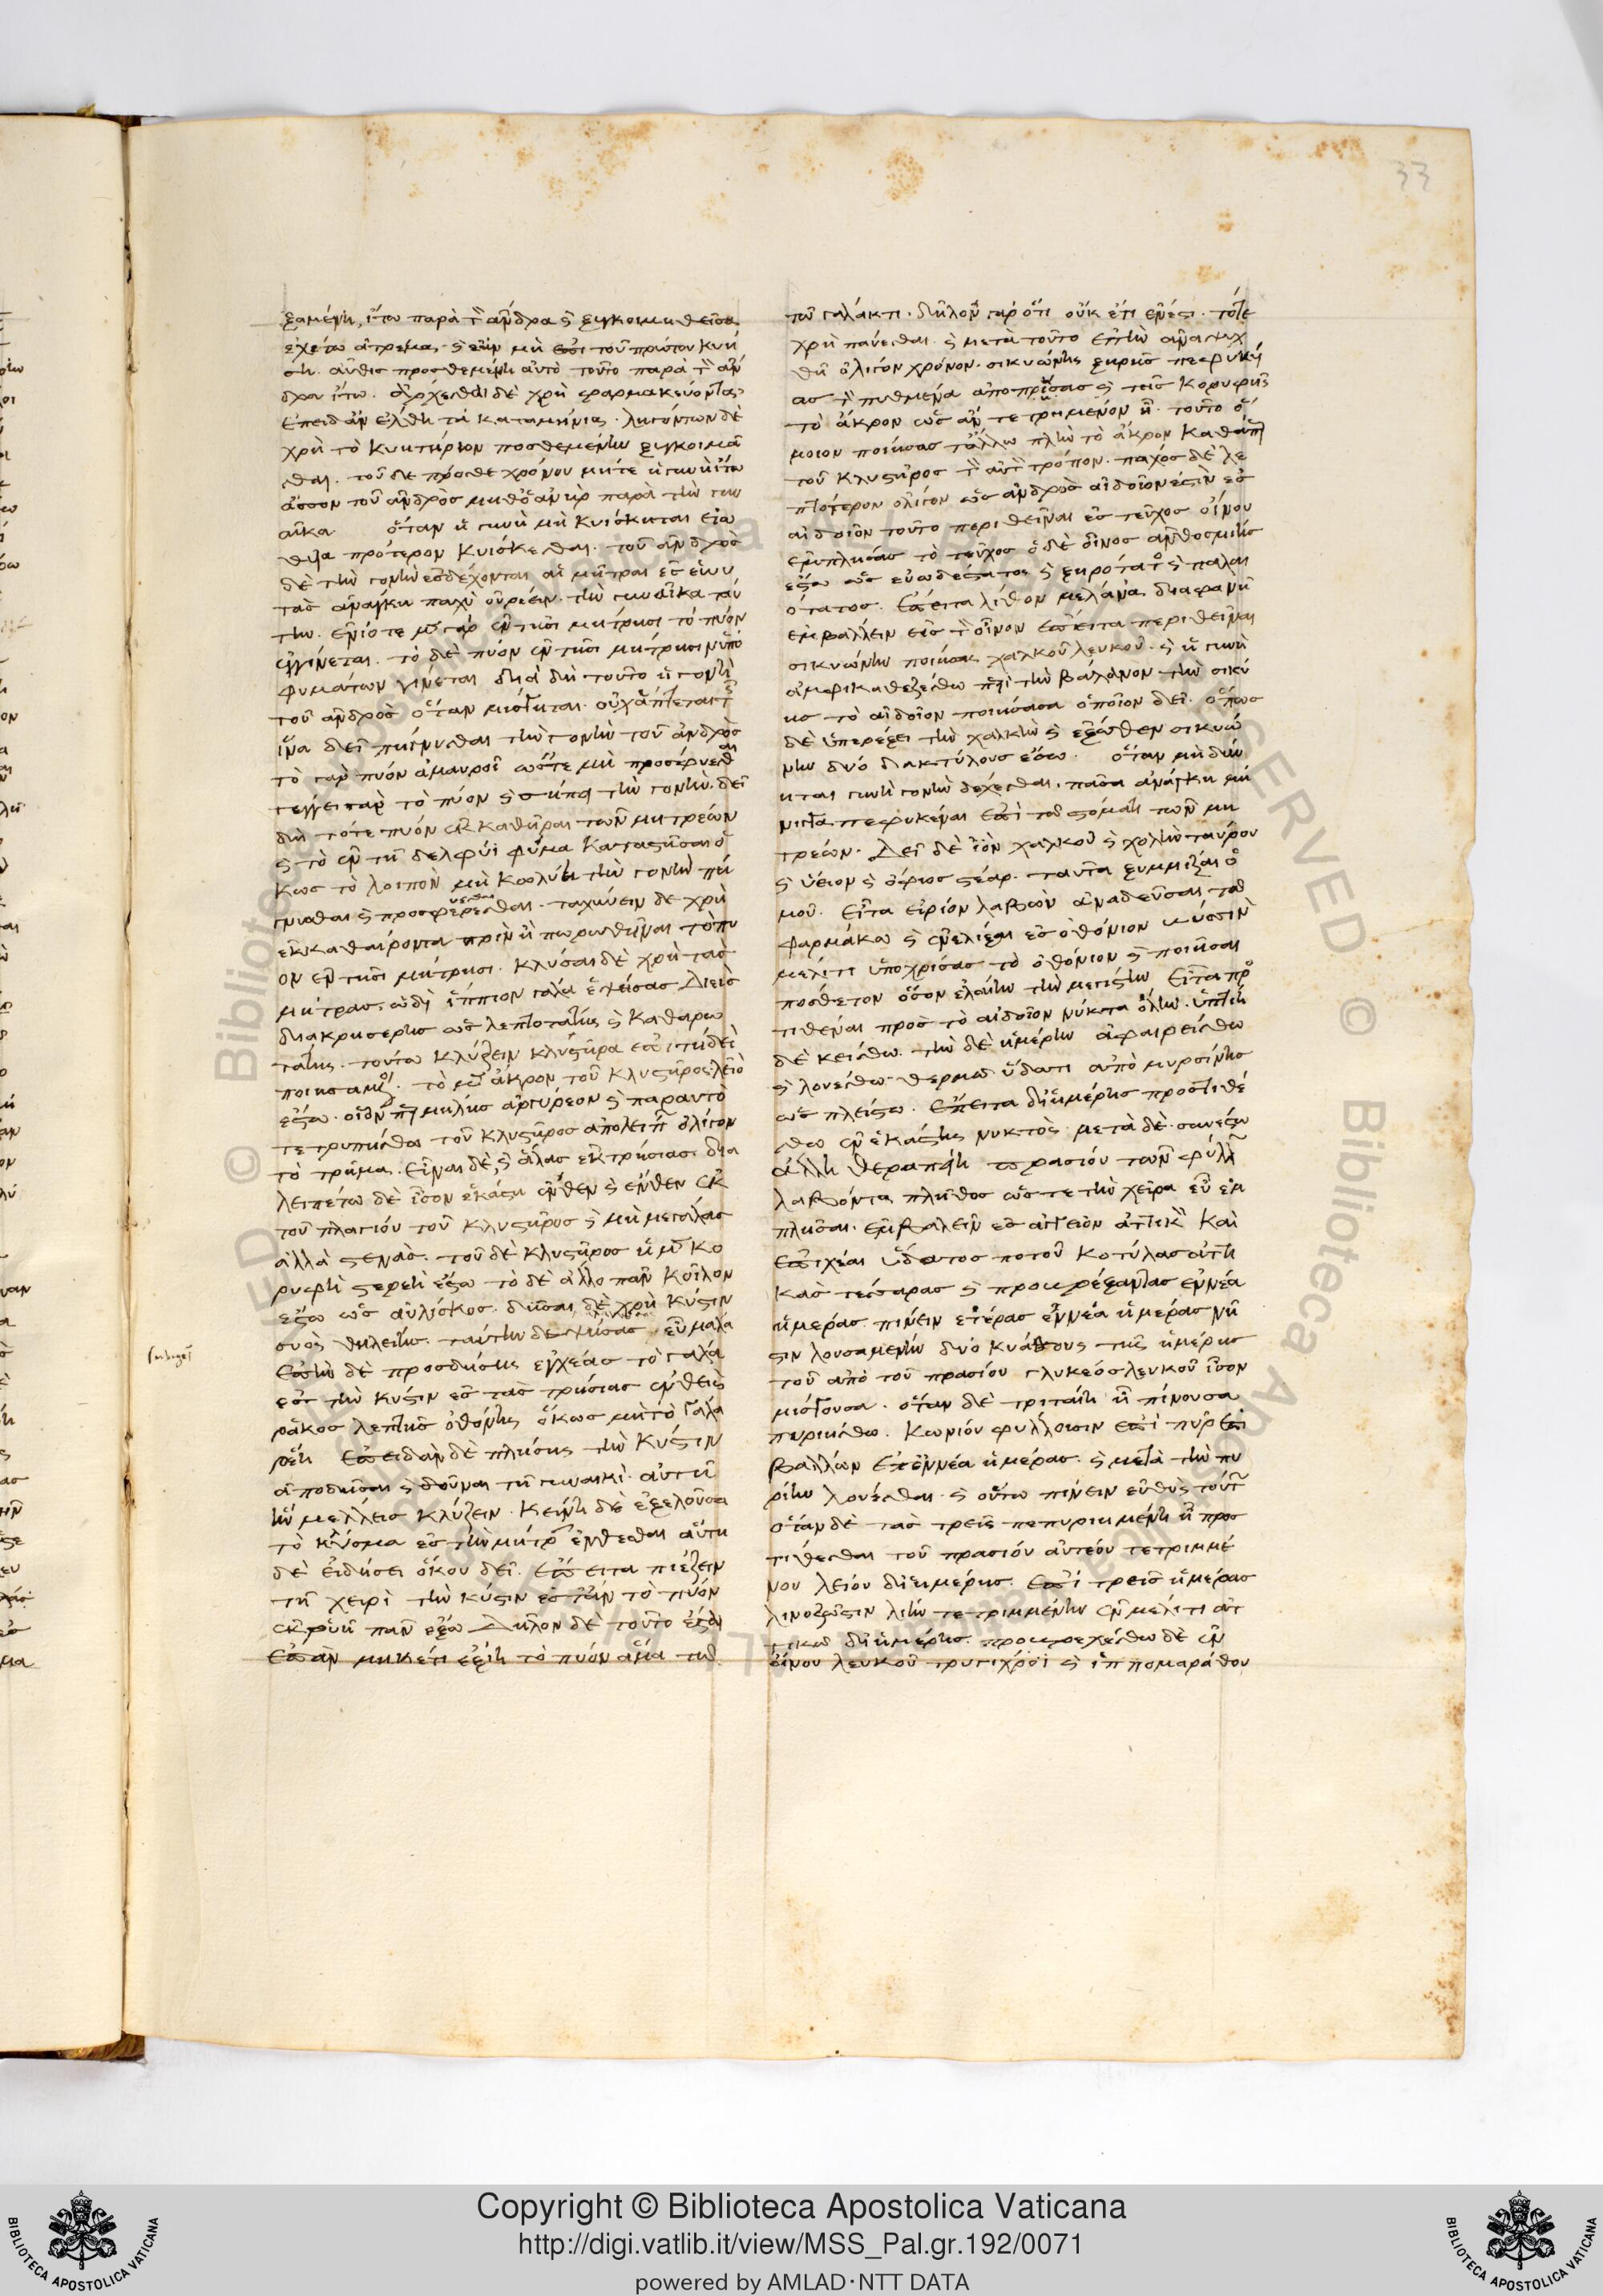 33
ξαμένη, ἴτω παρὰ τὸν ἄνδρα ϗ ξυγκοιμηθεῖσα
ἐχέτω ἀτρέμας ϗ ἐὰν μὴ ἐπὶ τοῦ πρώτου κυή
ση. αὖθις προσθεμένη αὐτὸ τοῦτο παρὰ τὸν ἄν
δρα ἴτω. ἄρχεσθαι δὲ χρὴ φαρμακεύοντας
ἐπειδὰν ἔλθη τὰ καταμήνια. ληγόντων δὲ
χρὴ τὸ κυητήριον προσθεμένην ξυγκοιμᾶ
σθαι. τοῦ δὲ πρόσθε χρόνου μήτε ἡ γυνὴ ἴτω
ἆσσον τοῦ ἀνδρὸς μηθ' ὁ ἀνὴρ παρὰ τὴν γυν
αῖκα. ὅταν ἡ γυνὴ μὴ κυίσκηται εἰω
θυῖα πρότερον κυίσκεσθαι. τοῦ ἀνδρὸς
δὲ τὴν γονὴν ἐσδέχονται αἱ μῆτραι ἐς ἑωυ
τὰς ἀνάγκη παχὺ οὐρέειν τὴν γυναῖκα ταύ
την. ἐνίοτε μὲν γὰρ ἐν τῆσι μήτρησι τὸ πῦον
ἐγγίνεται. τὸ δὲ πῦον ἐν τῆσι μήτρησιν ὑπὸ
φυμάτων γίνεται διὰ δὴ τοῦτο ἡ γονὴ
τοῦ ἀνδρὸς ὅταν μίσγηται. οὐχ ἅπτεται
ἵνα δεῖ πήγνυσθαι τὴν γονὴν τοῦ ἀνδρὸς
τὸ γὰρ πῦον ἀμαυροῖ ὥστε μὴ προσφύεσθαι
τέγγει γὰρ τὸ πῦον ϗ σήπει τὴν γονὴν. δεῖ
δὴ τότε πῦον ἐκκαθῆραι τῶν μητρέων
ϗ τὸ ἐν τῆ δελφύι φῦμα καταστῆσαι ὅ
κως τὸ λοιπὸν μὴ κωλύη τὴν γονὴν πή
γνυσθαι ϗ προσφέρεσθαι. ταχύνειν δὲ χρὴ
ἐκκαθαίροντα πρὶν ἢ πωρωθῆναι τὸ πυ
ον ἐν τῆσι μήτρησι. κλύσαι δὲ χρὴ τὰς
μήτρας. ὧδε ἵππιον γάλα ἑψήσας διεὶς
διὰ κρησέρης ὡς λεπτοτάτης ϗ καθαρω
τάτης. τούτω κλύζειν κλυστῆρα ἐπιτηδεί
ποιησάμενος. τὸ μὲν ἄκρον τοῦ κλυστῆρος λεῖο
ἔξω. οἷόνπερ μήλης ἀργύρεον ϗ παρ' αὐτὸ
τετρυπήσθω τοῦ κλυστῆρος ἀπολείπειν ὀλίγον
τὸ τρῆμα. εἶναι δὲ ϗ ἄλλας ἐκτρήσιας δια
λειπέτω δὲ ἴσον ἑκάστη ἔνθεν ϗ ἔνθεν ἐκ
τοῦ πλαγίου τοῦ κλυστῆρος ϗ μὴ μεγάλας
ἀλλὰ στενὰς. τοῦ δὲ κλυστῆρος ἡ μὲν κο
ρυφὴ στερεὴ ἔξω τὸ δὲ ἄλλο πᾶν κοῖλον
ἔξω ὡς αὐλίσκος. δῆσαι δὲ χρὴ κύστιν
συὸς θηλείης. ταύτην δε εὖ μάλα
ἐπὴν δὲ προσδήσης ἐγχέας τὸ γάλα
ἐς τὴν κύστιν ἐς τὰς τρήσιας ἐνθεὶς
ῥάκος λεπτῆς ὀθόνης ὅκως μὴ τὸ γάλα
ῥέη ἐπειδὰν δὲ πλήσης τὴν κύστιν
ἀποδῆσαι ϗ δοῦναι τῆ γυναικὶ αὐτῆ
ἣν μέλλεις κλύζειν. κείνη δὲ ἐξελοῦσα
τὸ κλύσμα ἐς τὴν μήτραν ἐνθέσθαι αὕτη
δὲ εἰδήσει ὅκου δεῖ. ἔπειτα πιέζειν
τῆ χειρὶ τὴν κύστιν ἔστ' ἂν τὸ πῦον
ἐκρυῆ πᾶν ἔξω δῆλον δὲ τοῦτο ἔσται
ἐπὰν μηκέτι ἐξίη τὸ πῦον ἅμα τῶ
τοῦ γάλακτι. δηλονοῦν γὰρ ὅτι οὐκ ἔτι ἔνεστι. τότε
χρὴ παύεσθαι ϗ μετὰ τοῦτο ἐπὴν ἀναψυχ
θῆ ὀλίγον χρόνον. σικυώνης ξηρῆς πεφυκυί
ας τὸν πυθμένα ἀποπρίσας ϗ τῆς κορυφῆς
τὸ ἄκρον ὡς ἂν τετρημένον ἦ. τοῦτο ὅ
μοιον ποιήσας τἄλλω πλὴν τὸ ἄκρον καθάπερ
τοῦ κλυστῆρος τὸν αὐτὸν τρόπον. πάχος δὲ λε
πτότερον ὀλίγον ὡς ἀνδρὸς αἰδοῖον ἐστὶν ἐς
αἰδοῖον τοῦτο περιθεῖναι ἐς τεῦχος οἴνου
ἐμπλήσας τὸ τεῦχος ὁ δὲ οἶνος ἀνθοσμίης
ἔξω ὡς εὐωδέστατος ϗ ξηρότατος ϗ παλαι
ότατος. ἔπειτα λίθον μέλανα διαφανῆ
ἐμβάλλειν εἰς τὸν οἶνον ἔπειτα περιθεῖναι
σικυώνην ποιήσας χαλκοῦ λευκοῦ. ϗ ἡ γυνὴ
ἀμφικαθεζέσθω περὶ τὴν βάλανον τὴν σικύ
ης τὸ αἰδοῖον ποιήσασα ὁποῖον δεῖ. ὅπως
δὲ ὑπερέξει τὴν χαλκῆν ϗ ἔξωθεν σικυώ
νην δύο δακτύλους ἔσω. ὅταν μὴ δύν
ηται γυνὴ γονὴν δέχεσθαι. πᾶσα ἀνάγκη μή
νιγγα πεφυκέναι ἐπὶ τοῦ στόματι τῶν μη
τρέων. δεῖ δὲ ἰὸν χαλκοῦ ϗ χολὴν ταύρου
ϗ ὕειον ϗ ὄφιος στέαρ. ταῦτα ξυμμίξαι ὁ
μοῦ. εἶτα εἰρίον λαβὼν ἀναδεῦσαι τοῦ
φαρμάκω ϗ ἐνελίξαι ἐς ὀθόνιον
μέλιτι ὑποχρίσας τὸ ὀθόνιον ϗ ποιῆσαι
πρόσθετον ὅσον ἐλαίην τὴν μεγίστην εἶτα προ
τιθέναι πρὸς τὸ αἰδοῖον νύκτα ὅλην. ὑπτίη
δὲ κείσθω. τὴν δὲ ἡμέρην ἀφαιρείσθω
ϗ λουέσθω θερμῶ ὕδατι ἀπὸ μυρσίνης
ὡς πλείστω. ἔπειτα δι' ἡμέρης προστιθέ
σθω ἐν ἑκάστης νυκτὸς μετὰ δὲ σανέστω
ἄλλη θεραπείη πρασίου τῶν φύλλων
λαβόντα πλῆθος ὥστε τὴν χεῖρα εὖ ἐμ
πλῆσαι. ἐμβαλεῖν ἐς ἀγγεῖον ἀττικὸν καὶ
ἐπιχέαι ὕδατος ποτοῦ κοτύλας ἀττι
κὰς τέσσαρας ϗ προμβρέξαντας ἐννέα
ἡμέρας πίνειν ἑτέρας ἐννέα ἡμέρας νῆ
στιν λουσαμένην δύο κυάθους τῆς ἡμέρης
τοῦ ἀπὸ τοῦ πρασίου γλυκέος λευκοῦ ἴσον
μίσγουσα. ὅταν δὲ τριταίη ἦ πίνουσα
πυριήσθω. κωνίου φύλλοισιν ἐπὶ πῦρ ἐπι
βάλλων ἐπ' ἐννέα ἡμέρας. ϗ μετὰ τὴν πυ
ρίην λούεσθαι. ϗ οὕτω πίνειν εὐθὺς τοῦτο
ὅταν δὲ τὰς τρεῖς πεπυριημένη ἦ προς
τίθεσθαι τοῦ πρασίου αὐτέου τετριμμέ
νου λείου δι' ἡμέρης. ἐπὶ τρεῖς ἡμέρας
λινόζωστιν λείην τετριμμένην ἐν μέλιτι ἀτ
τικῶ δι' ἡμέρης. προμβρεχέσθω δὲ ἐν
οἴνου λευκοῦ τρυγὶ χρόϊ ϗ ἱππομαράθου
Copyright © Biblioteca Apostolica Vaticana
http://digi.vatlib.it/view/MSS_Pal.gr.192/0071
powered by AMLAD·NTT DATA
BIBLIOTECA APOSTOLICA VATICANA
BIBLIOTECA APOSTOLICA VATICANA